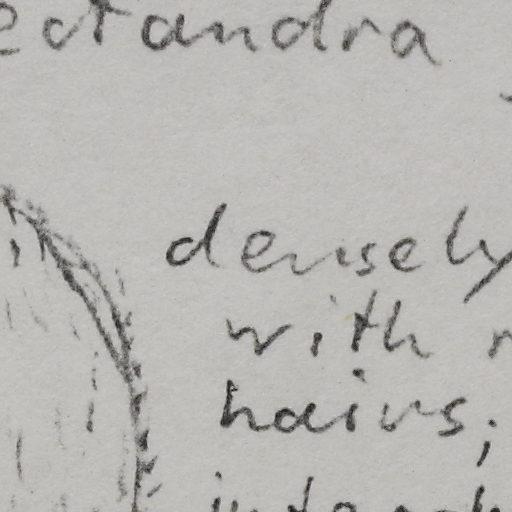 ectandra
densely
with
hairs;